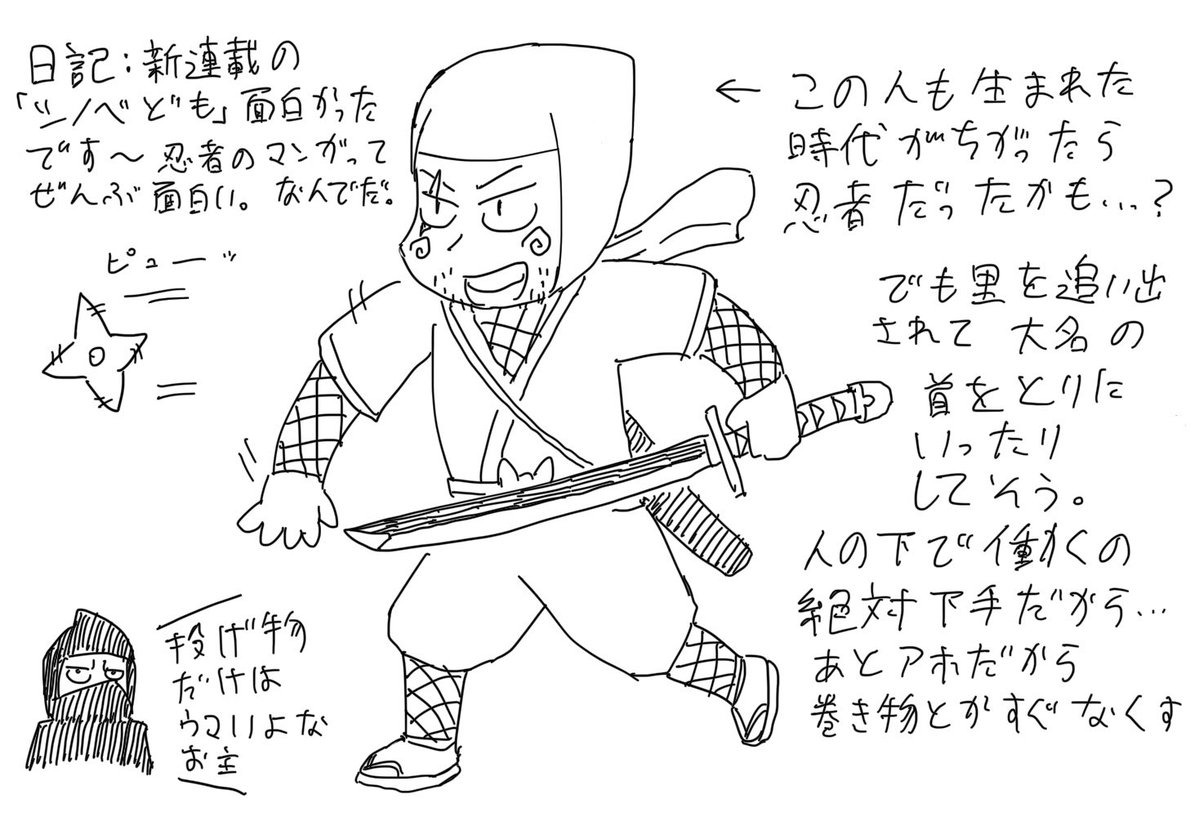 日記:新連載の
「シノベども」面白かった
です〜忍者のマンガって
ぜんぶ面白い。なんでだ。
ピューッ
← この人も生まれた
時代がちがったら
忍者だったかも…?
でも里を追い出
されて大名の
首をとりに
いったり
してそう。
人の下で働くの
絶対下手だから…
あとアホだから
巻き物とかすぐなくす
投げ物
だけは
ウマいよな
お主